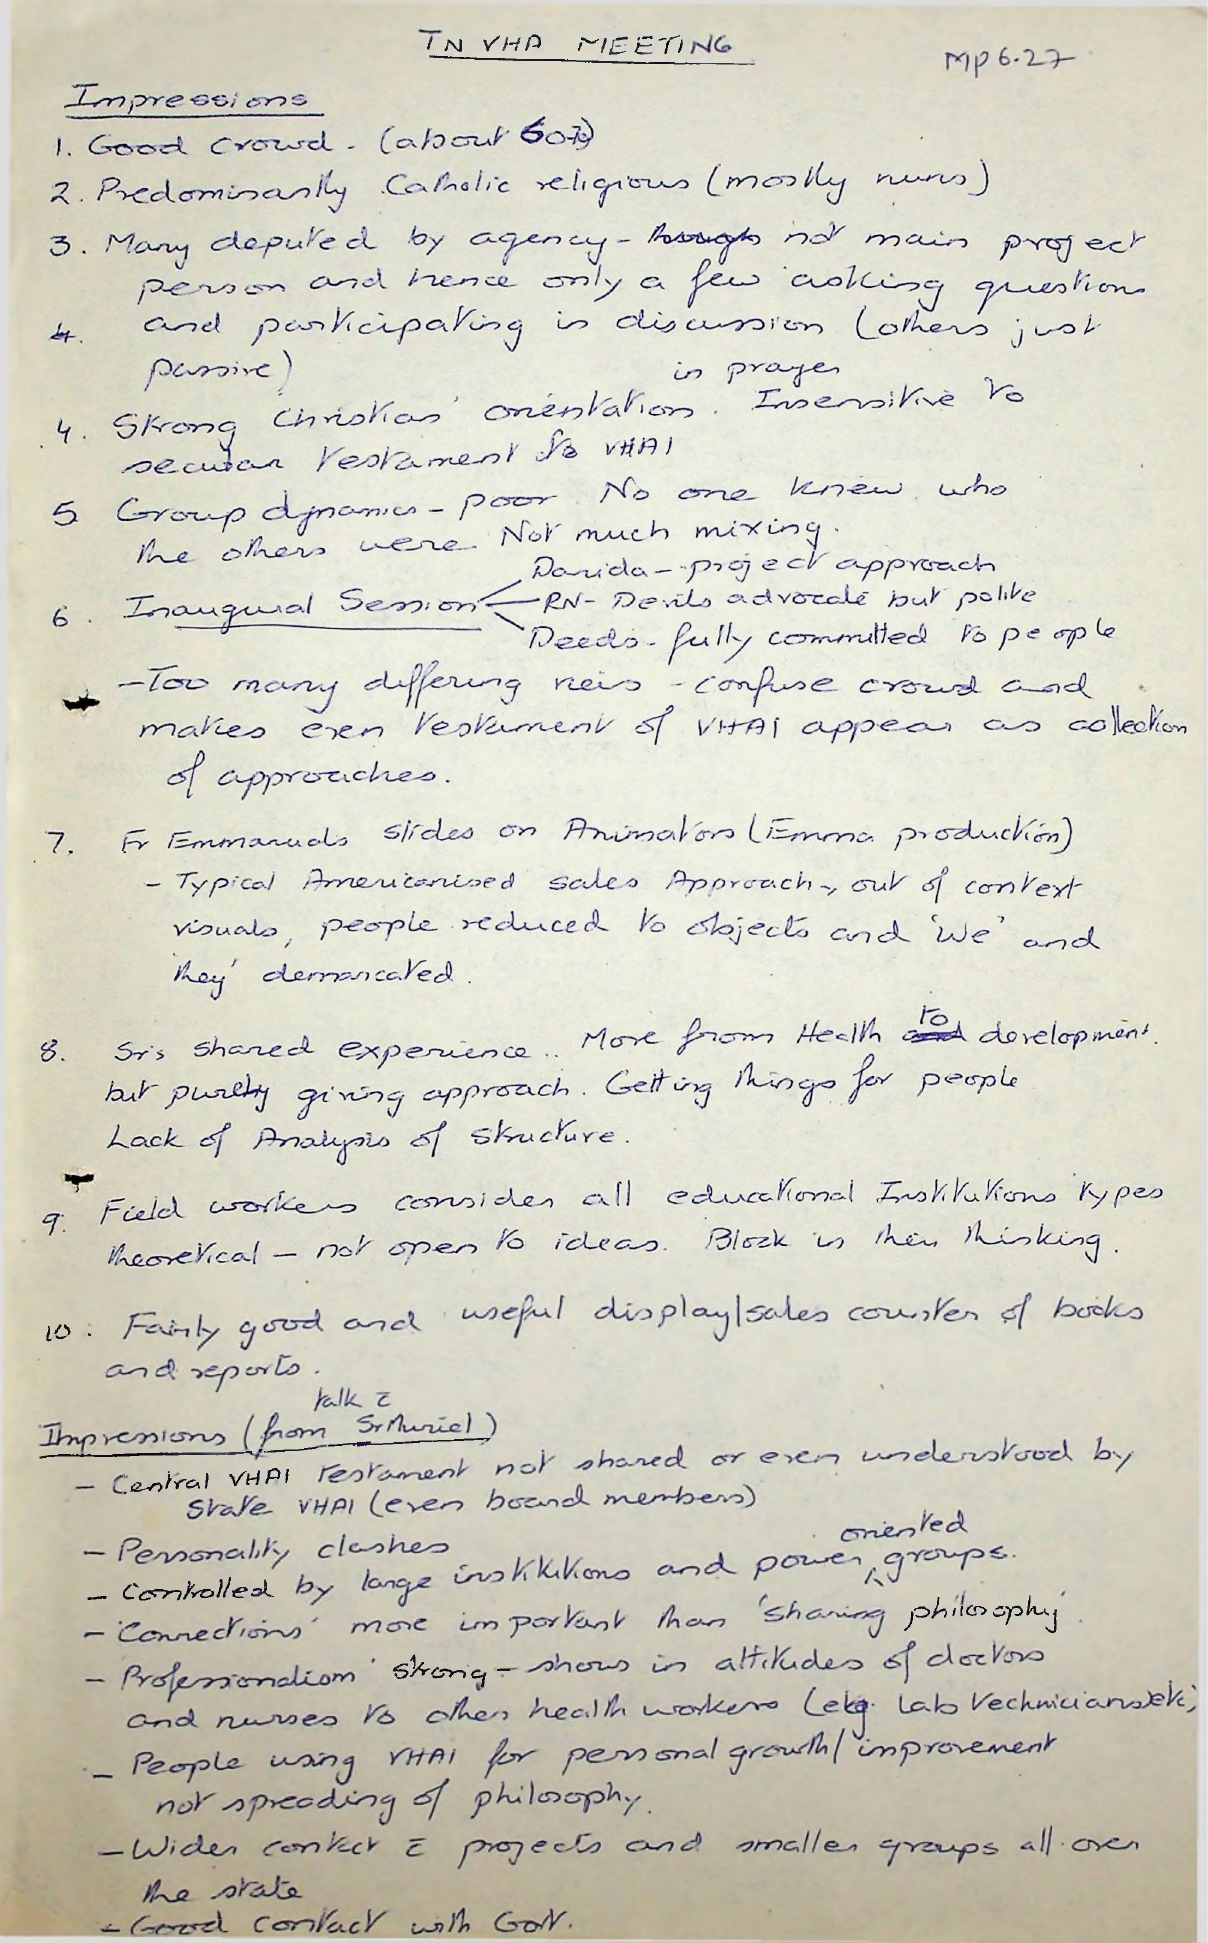 TN VHA MEETING
MP 6.27
Impressions
1. Good crowd - (about 60)
2. Predominantly Catholic religious (mostly nuns)
3. Many deputed by agency - though not main project
person and hence only a few asking questions
4. and participating in discussion (others just
passive)
in prayer
4. Strong Christian orientation. Insensitive to
secular testament to VHAI
5 Group dynamics - poor No one knew who
the others were. Not much mixing.
Davida - project approach
6. Inaugural Session RN - Devils advocate but polite
Deeds - fully committed to people
- Too many differing veiws - confuse crowd and
makes even testament of VHAI appear as collection
of approaches.
7. Fr Emmanuels slides on Animators (Emma production)
- Typical Americanised sales Approach, out of context
visuals, people reduced to objects and 'We' and
they' demarcated.
to
8. Srs shared experience .. More from Health and development.
but purely giving approach. Getting things for people
Lack of Analysis of structure.
9. Field workers consider all educational Institutions types
theoretical - not open to ideas. Block in their thinking.
10. Fairly good and useful display/sales counter of books
and reports.
talk c̄
Impressions (from Sr Muriel)
- Central VHAI testament not shared or even understood by
State VHAI (even board members)
- Personality clashes
oriented
- Controlled by large institutions and power ^ groups.
- 'Connections' more important than 'sharing philosophy'.
- Professionalism strong - shows in attitudes of doctors
and nurses to other health workers (eg. lab technicians etc)
- People using VHAI for personal growth/improvement
not spreading of philosophy.
- Wider contact c̄ projects and smaller groups all over
the state
- Good contact with Govt.